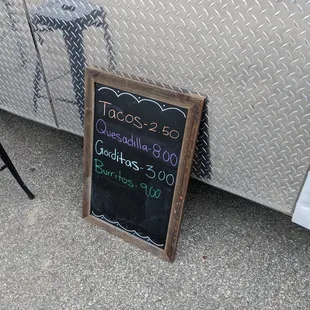 Tacos-2.50
Quesadilla-8.00
Gorditas-3.00
Burritos-9.00